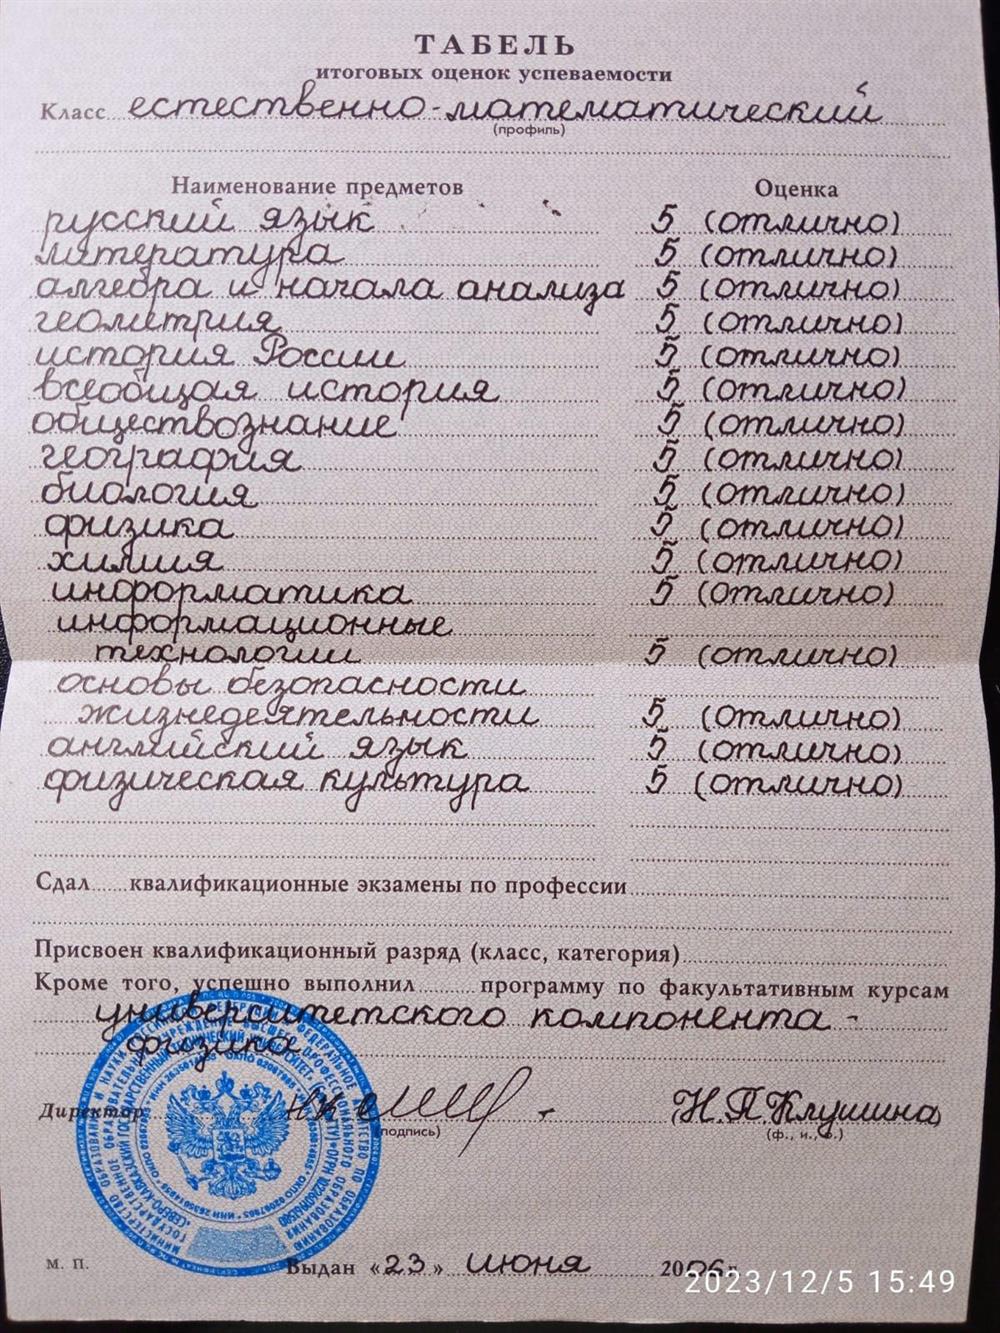 ТАБЕЛЬ
итоговых оценок успеваемости
Класс естественно-математический
(профиль)
Наименование предметов Оценка
русский язык 5 (отлично)
литература 5 (отлично)
алгебра и начала анализа 5 (отлично)
геометрия 5 (отлично)
история России 5 (отлично)
всеобщая история 5 (отлично)
обществознание 5 (отлично)
география 5 (отлично)
биология 5 (отлично)
физика 5 (отлично)
химия 5 (отлично)
информатика 5 (отлично)
информационные
технологии 5 (отлично)
основы безопасности
жизнедеятельности 5 (отлично)
английский язык 5 (отлично)
физическая культура 5 (отлично)
Сдал квалификационные экзамены по профессии
Присвоен квалификационный разряд (класс, категория)
Кроме того, успешно выполнил программу по факультативным курсам
университетского компонента -
физика
Директор Н.П.Клушина
(подпись) (ф., и., о.)
М. П. Выдан «23» июня 2006 г.
2023/12/5 15:49